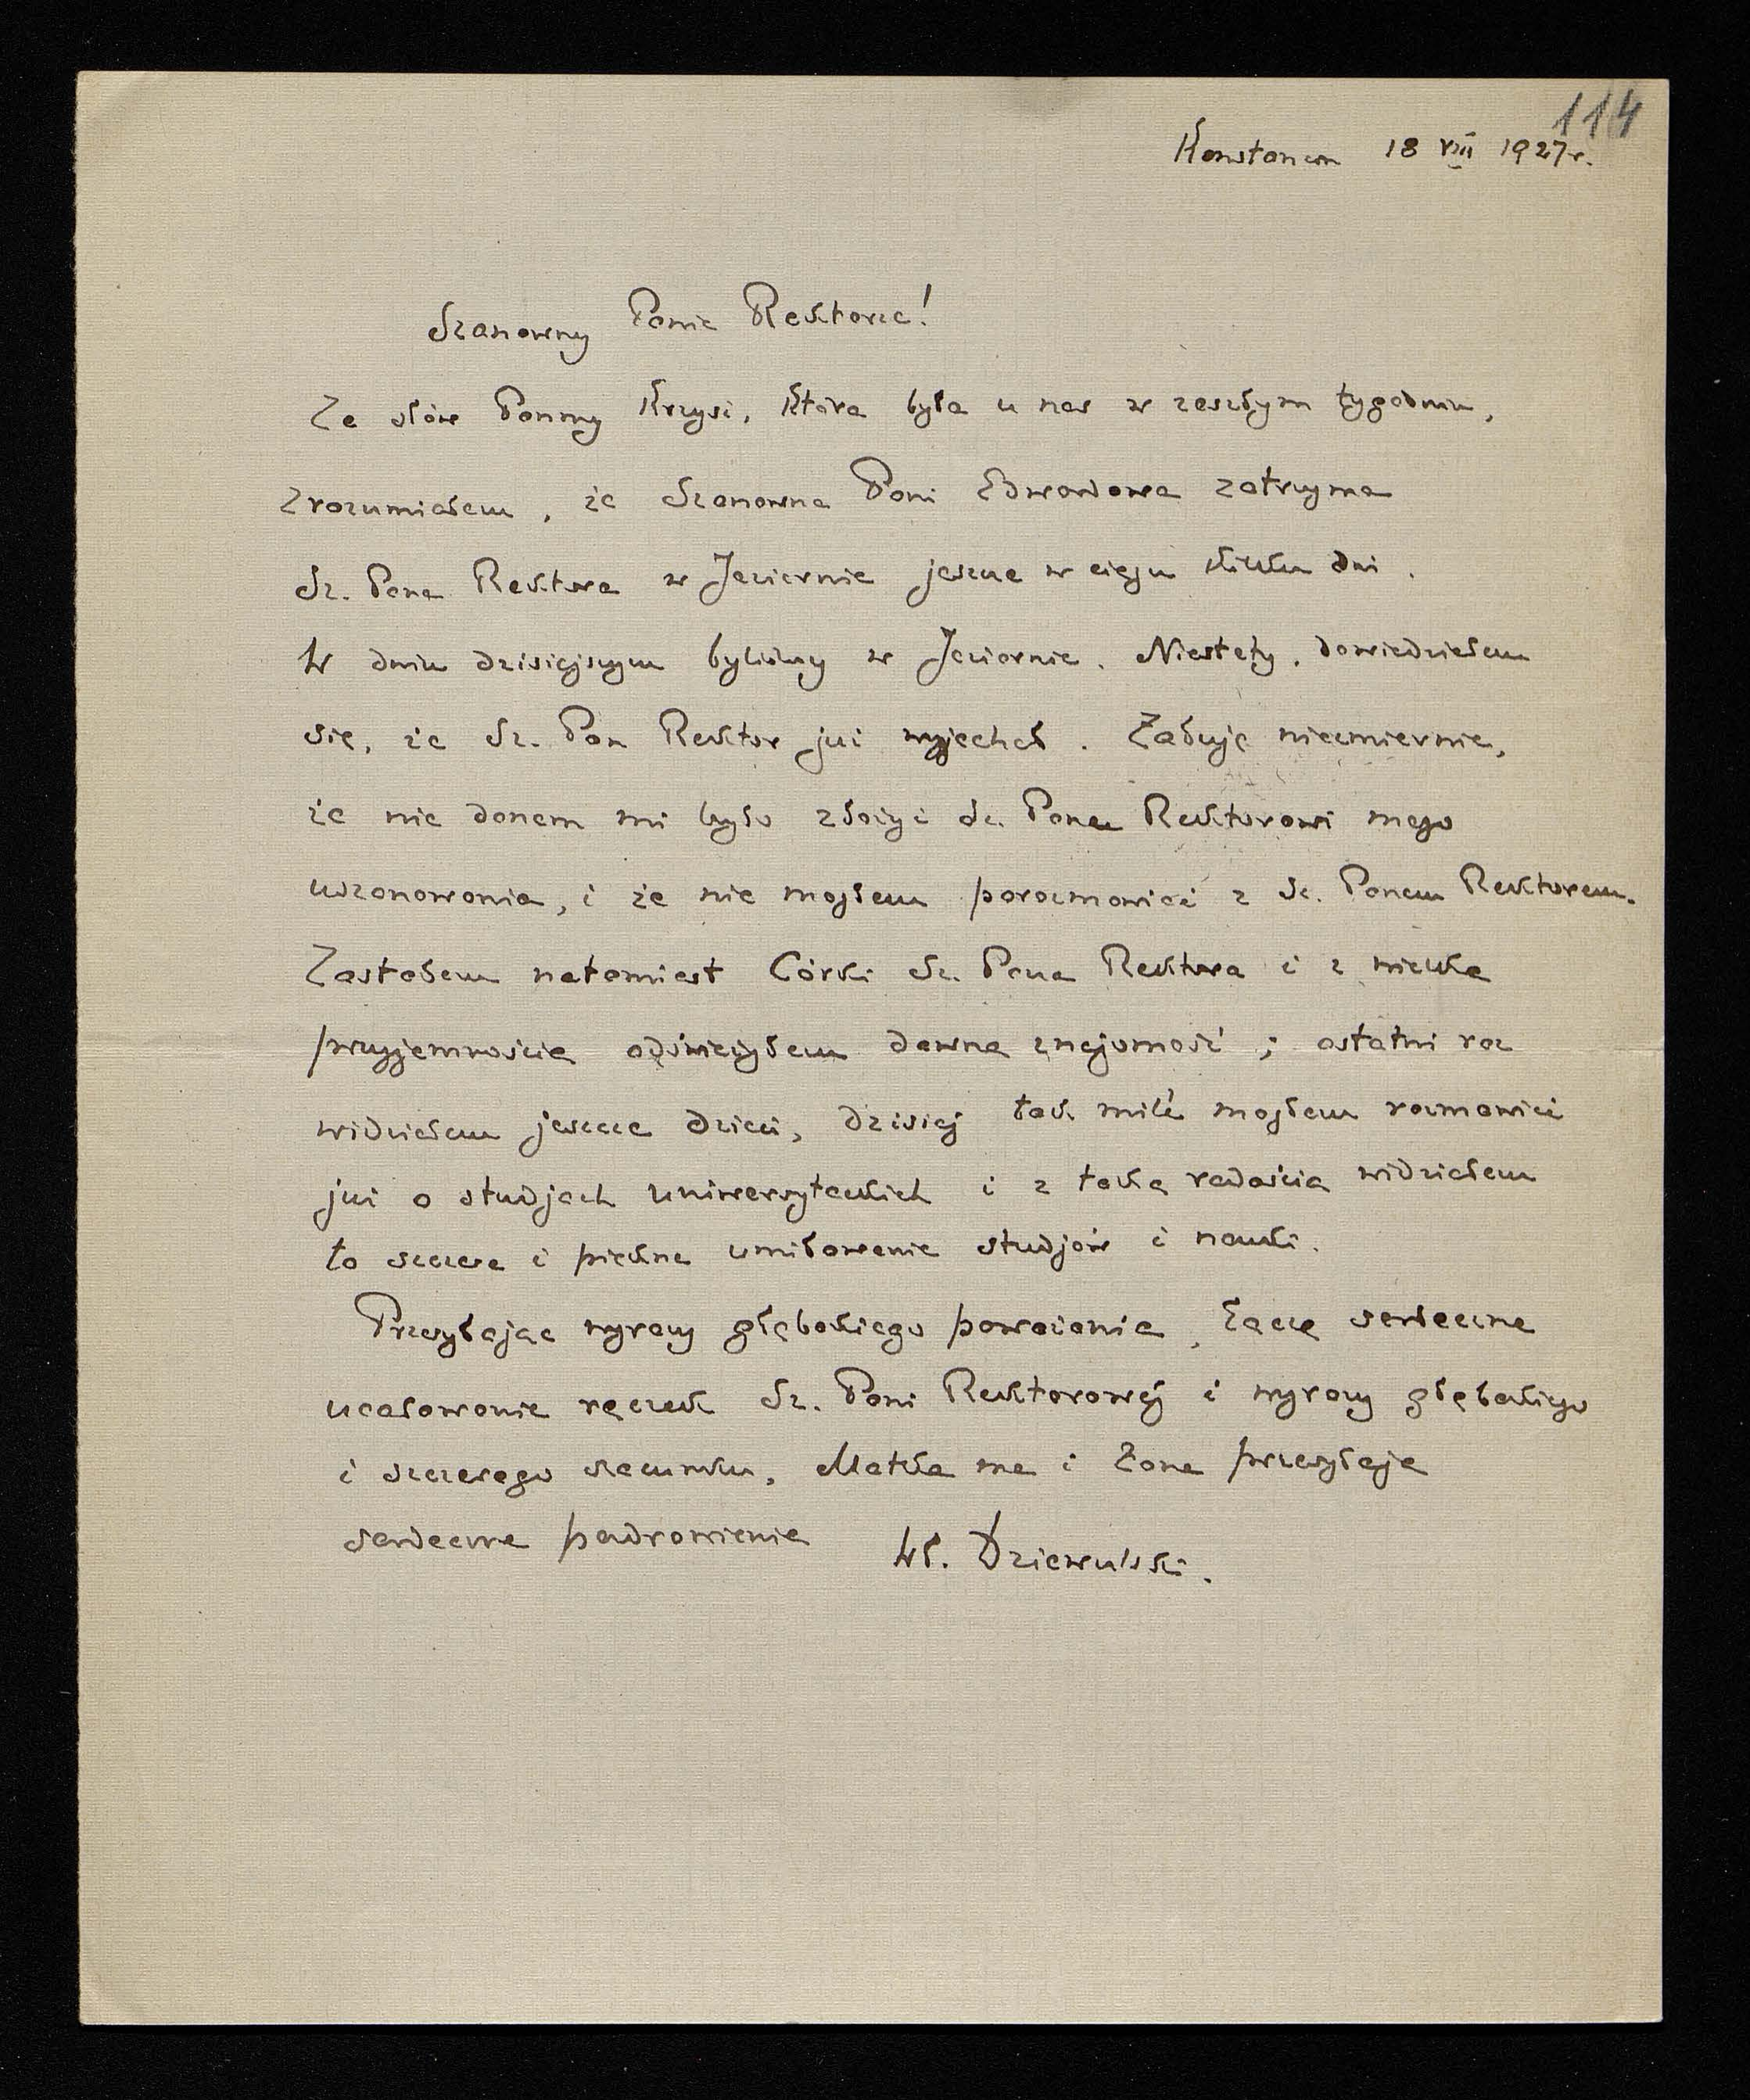 114
Konstancin 18 VIII 1927 r.
Szanowny Panie Rektorze!
Ze słów Panny Krzysi, która była u nas w zeszłym tygodniu,
zrozumiałem, że Szanowna Pani Edwardowa zatrzyma
Sz. Pana Rektora w Jeziornie jeszcze w ciągu kilku dni.
W dniu dzisiejszym byliśmy w Jeziornie. Niestety, dowiedziałem
się, że Sz. Pan Rektor już wyjechał. Żałuję niezmiernie,
że nie danem mi było złożyć Sz. Panu Rektorowi mego
uszanowania, i że nie mogłem porozmawiać z Sz. Panem Rektorem.
Zastałem natomiast Córki Sz. Pana Rektora i z wielką
przyjemnością odświeżyłem dawną znajomość; ostatni raz
widziałem jeszcze dzieci, dzisiaj tak mile mogłem rozmawiać
już o studjach uniwersyteckich i z taką radością widziałem
to szczere i piękne umiłowanie studjów i nauki.
Przesyłając wyrazy głębokiego poważania, łączę serdeczne
ucałowanie rączek Sz. Pani Rektorowej i wyrazy głębokiego
i szczerego szacunku, Matka ma i Żona przesyłają
serdeczne pozdrowienia Wł. Dziewulski.